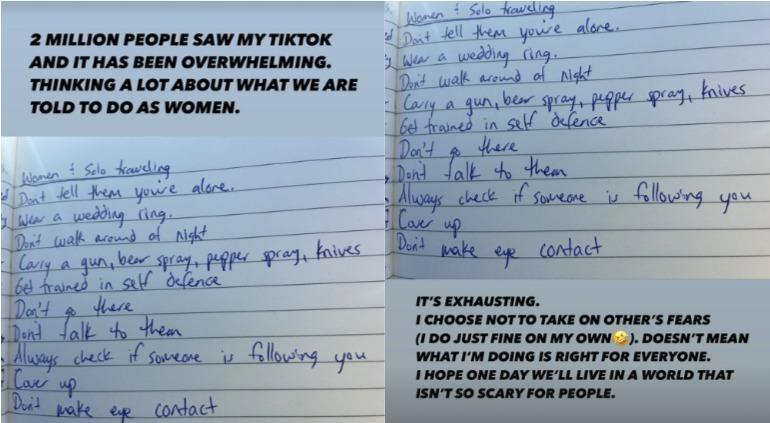 2 MILLION PEOPLE SAW MY TIKTOK
AND IT HAS BEEN OVERWHELMING.
THINKING A LOT ABOUT WHAT WE ARE
TOLD TO DO AS WOMEN.
Women & Solo traveling
Don't tell them you're alone.
Wear a wedding ring.
Don't walk around at Night
Carry a gun, bear spray, pepper spray, knives
Get trained in self defence
Don't go there
Don't talk to them
Always check if someone is following you
Cover up
Don't make eye contact
Women & Solo traveling
Don't tell them you're alone.
Wear a wedding ring.
Don't walk around at Night
Carry a gun, bear spray, pepper spray, knives
Get trained in self defence
Don't go there
Don't talk to them
Always check if someone is following you
Cover up
Don't make eye contact
IT'S EXHAUSTING.
I CHOOSE NOT TO TAKE ON OTHER'S FEARS
(I DO JUST FINE ON MY OWN🤣). DOESN'T MEAN
WHAT I'M DOING IS RIGHT FOR EVERYONE.
I HOPE ONE DAY WE'LL LIVE IN A WORLD THAT
ISN'T SO SCARY FOR PEOPLE.